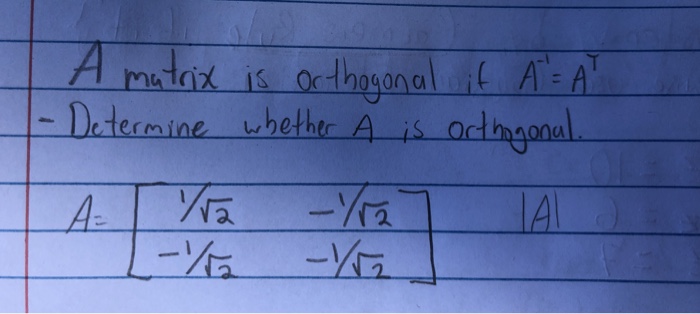 A matrix is orthogonal if A⁻¹ = Aᵀ
- Determine whether A is orthogonal.
A= [ 1/√2 -1/√2 |A|
-1/√2 -1/√2 ]